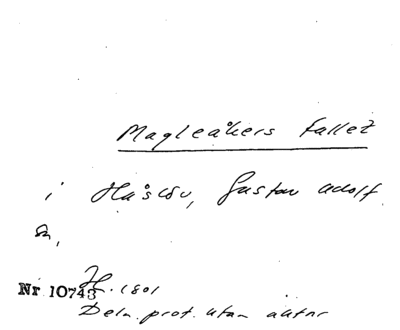 Magleåkers fallet
i Håslöv, Gustav Adolf
sn,
H. 1801
Nr 10743
Deln. prot. utan aktnr